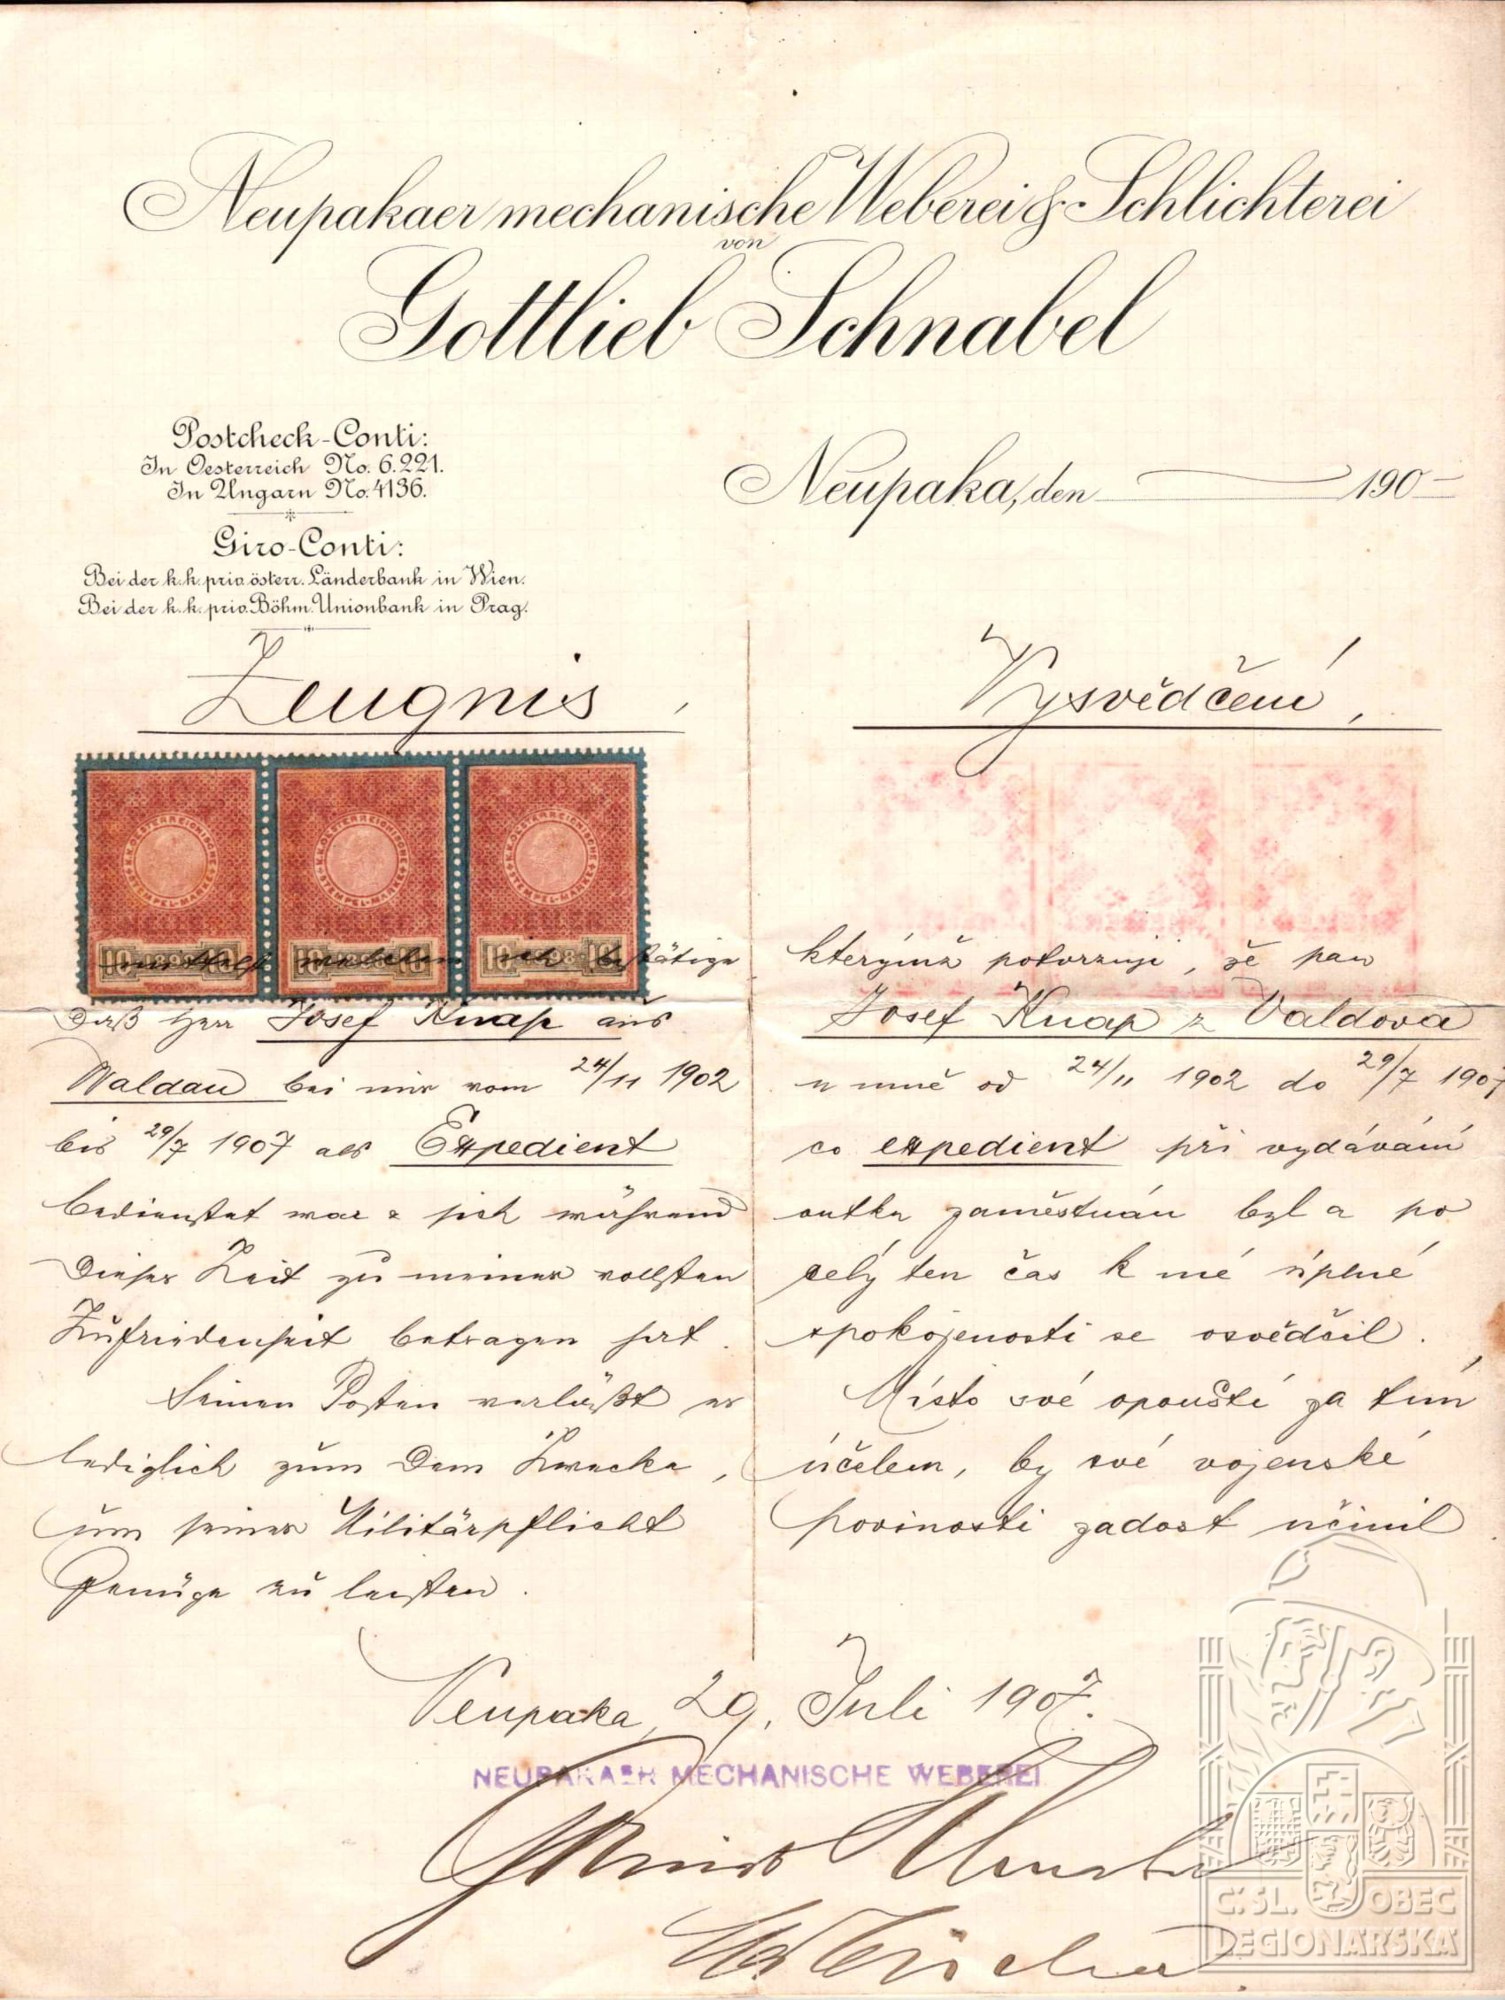 Neupakaer mechanische Weberei & Schlichterei
von
Gottlieb Schnabel
Postcheck-Conti:
In Oesterreich No. 6.221.
In Ungarn No. 4136.
Giro-Conti:
Bei der k. k. priv. österr. Länderbank in Wien.
Bei der k. k. priv. Böhm. Unionbank in Prag.
Neupaka, den 190
Zeugnis,
K.K. OESTERREICHISCHE STEMPEL-MARKE
10 1898 10
K.K. OESTERREICHISCHE STEMPEL-MARKE
10 1898 10
K.K. OESTERREICHISCHE STEMPEL-MARKE
10 1898 10
mittelst welchem ich bestätige
daß Herr Josef Knap aus
Waldau bei mir vom 24/11 1902
bis 29/7 1907 als Expedient
bedienstet war & sich während
dieser Zeit zu meiner vollsten
Zufriedenheit betragen hat.
Seinen Posten verläßt er
lediglich zum dem Zwecke,
um seiner Militärpflicht
Genüge zu leisten.
Vysvědčení,
kterýmž potvrzuji, že pan
Josef Knap z Valdova
u mně od 24/11 1902 do 29/7 1907
co expedient při vydávání
outku zaměstnán byl a po
celý ten čas k mé úplné
spokojenosti se osvědčil.
Místo své opouští za tím
účelem, by své vojenské
povinosti zadost učinil
Neupaka, 29. Juli 1907.
NEUPAKAER MECHANISCHE WEBEREI
Č.SL. OBEC
LEGIONÁŘSKÁ